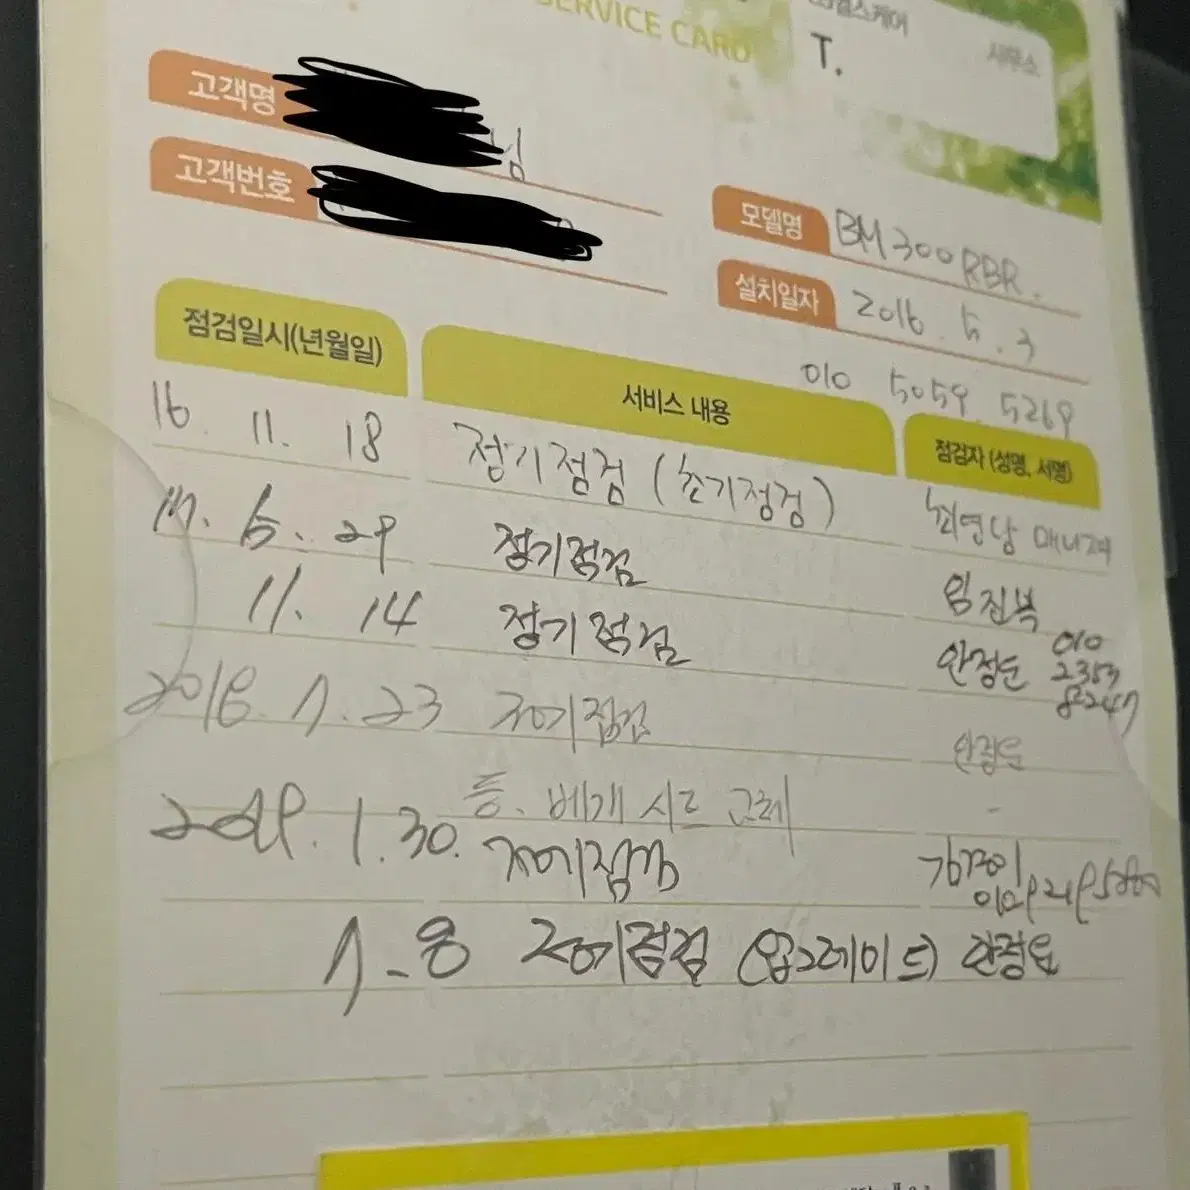 SERVICE CARD
T.
사무소
고객명
님
고객번호
모델명 BM300RBR.
설치일자 2016. 5. 3
010 5059 5269
점검일시(년월일) 서비스 내용 점검자 (성명, 서명)
16. 11. 18 정기점검 (초기점검) 매니저
17. 6. 29 정기점검 임진복
11. 14 정기점검 안정순 010
2018. 7. 23 정기점검 안정순
등. 베개 시트 교체 -
2019. 1. 30. 정기점검
7-8 정기점검 (업그레이드) 안정순